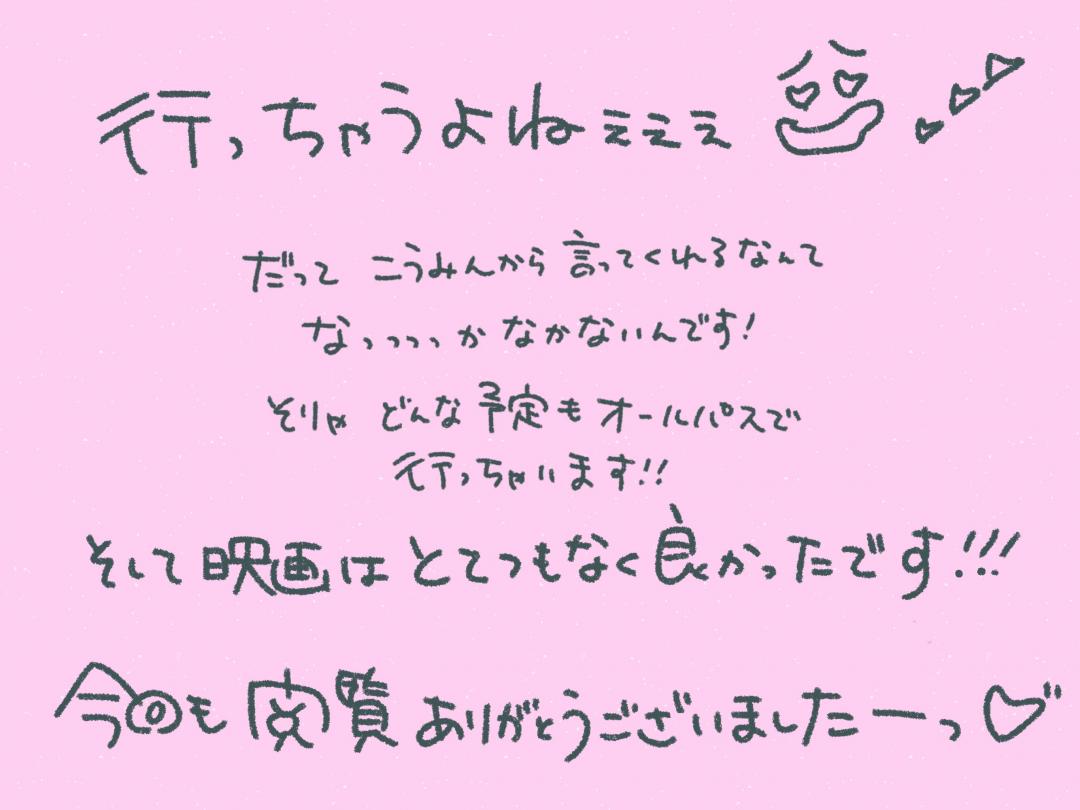 行っちゃうよねぇぇぇ
だって こうみんから言ってくれるなんて
なっっっっか なかないんです!
そりゃ どんな予定もオールパスで
行っちゃいます!!
そして映画は とてつもなく良かったです!!!
今回も閲覧ありがとうございましたーっ♡